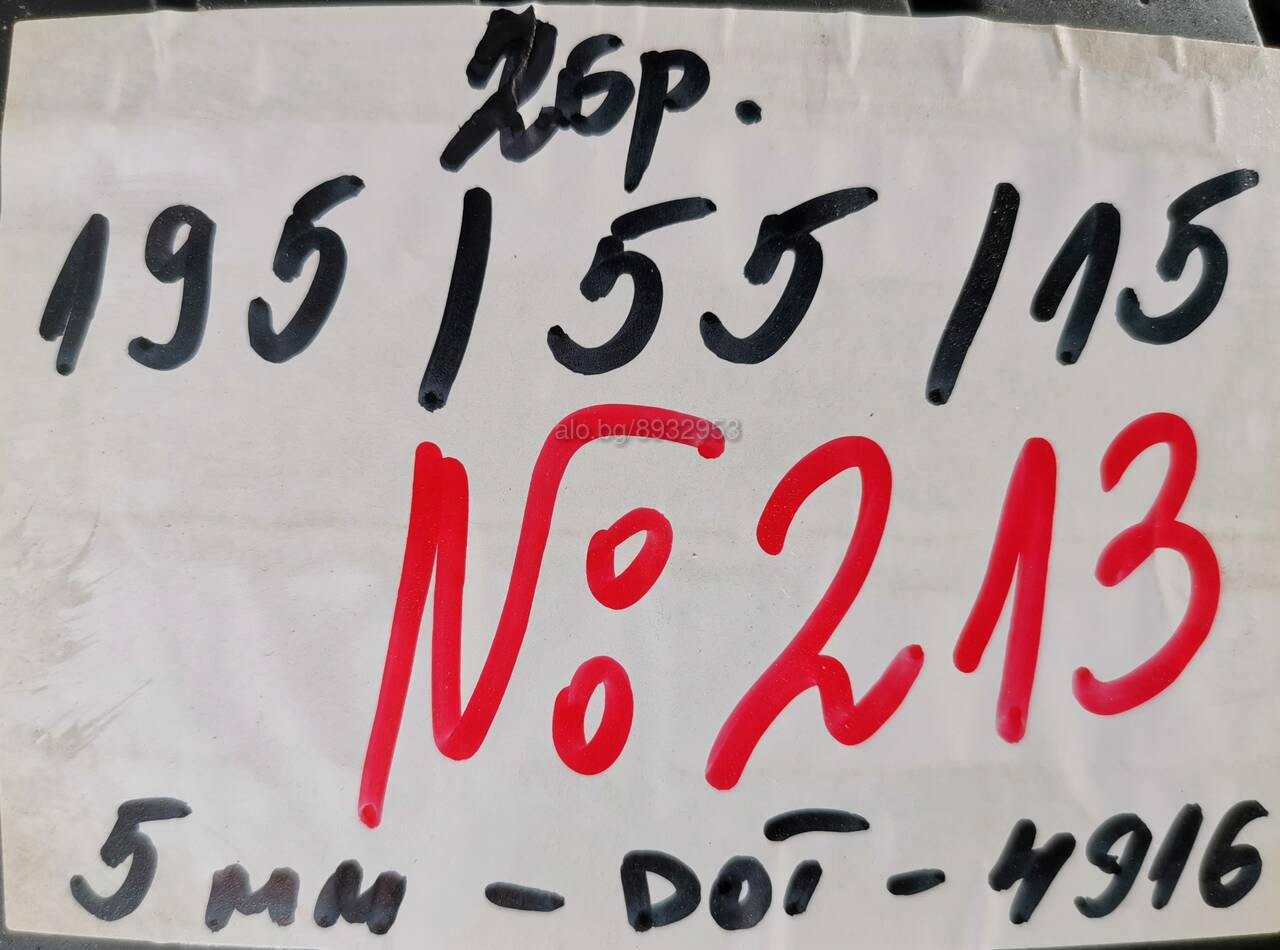 2бр.
195/55/15
alo.bg/8932953
№: 213
5мм - DOT - 4916